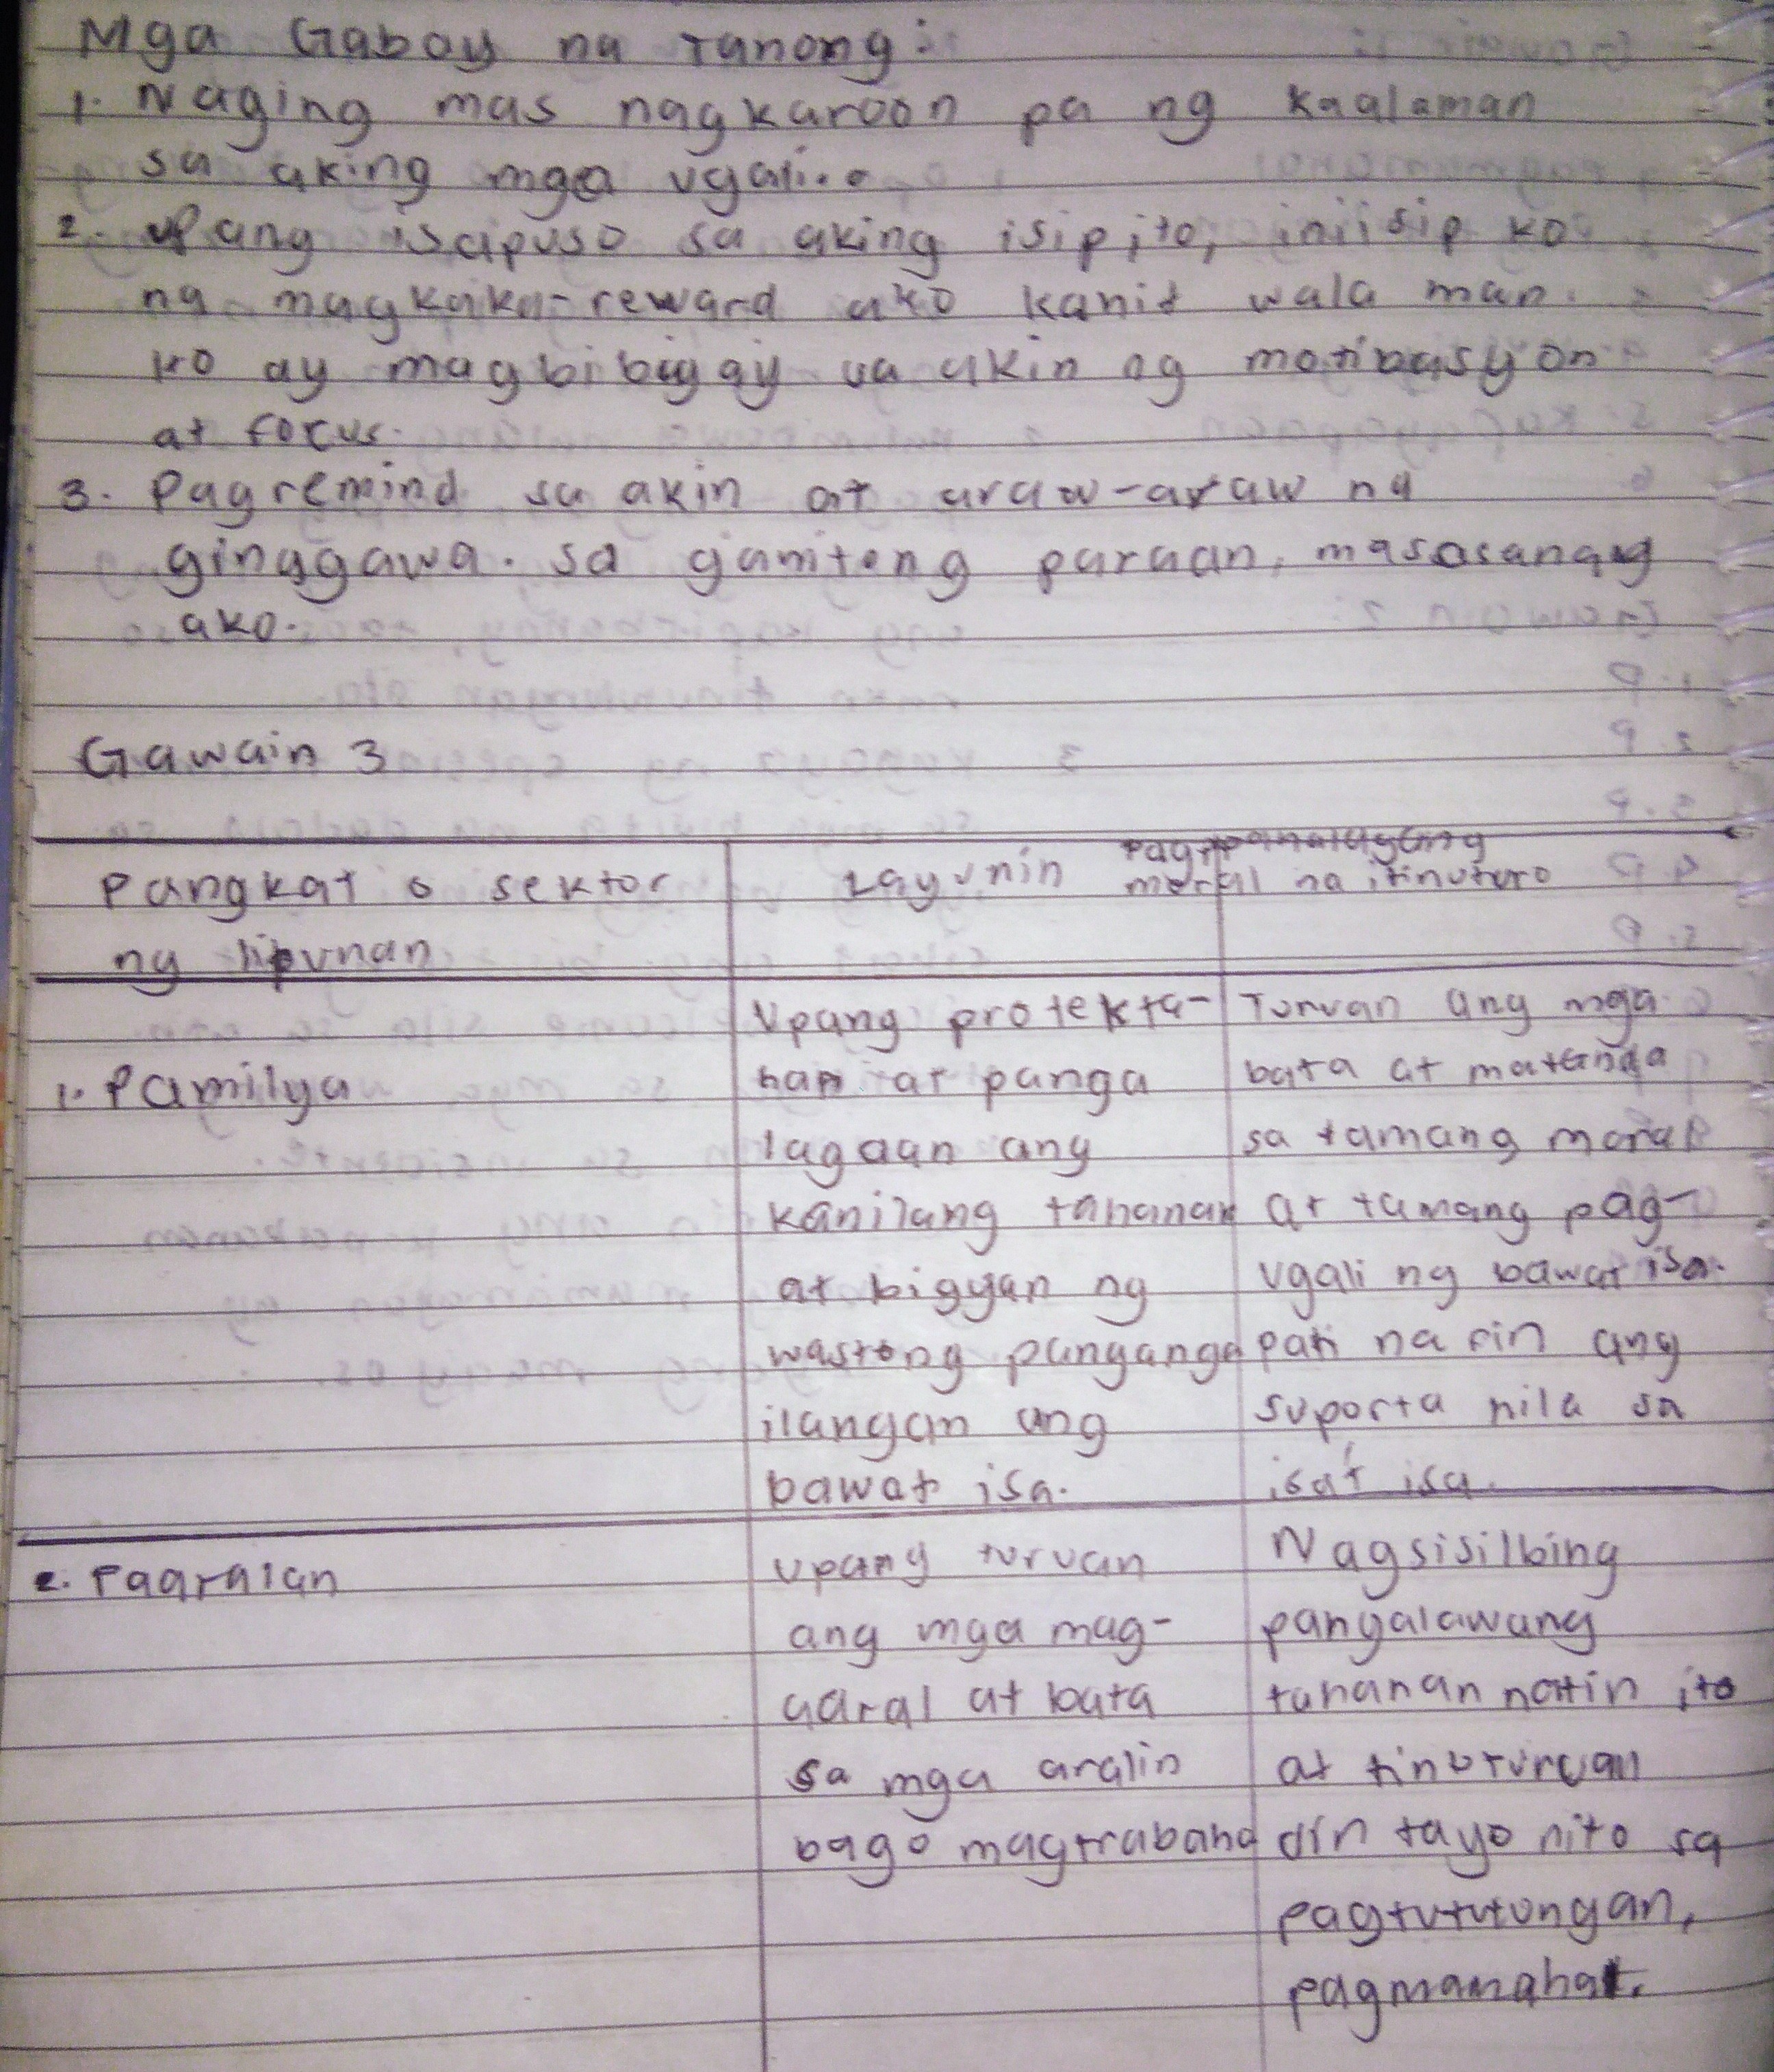 Mga Gabay na Tanong:
1. Naging mas nagkaroon pa ng kaalaman
sa aking mga ugali..
2. Upang isapuso sa aking isip ito, iniisip ko
na magkaka-reward ako kahit wala man.
ko ay magbibigay sa akin ng motibasyon
at focus.
3. Pagremind sa akin at araw-araw na
ginggawa. Sa ganitong paraan, masasanay
ako.
Gawain 3
Pangkat o sektor
ng lipunan
Layunin
Pagpapahalagang
moral na itinuturo
1. Pamilya
Upang protekta-
han at panga
lagaan ang
kanilang tahanan
at bigyan ng
wastong panganga
ilangan ang
bawat isa.
Turuan ang mga
bata at matanda
sa tamang moral
at tamang pag-
ugali ng bawat isa.
pati na rin ang
suporta nila sa
isa't isa.
2. Paaralan
upang turuan
ang mga mag-
aaral at bata
sa mga aralin
bago magtrabaho
Nagsisilbing
pangalawang
tahanan natin ito
at tinuturuan
din tayo nito sa
pagtututungan,
pagmamahal.